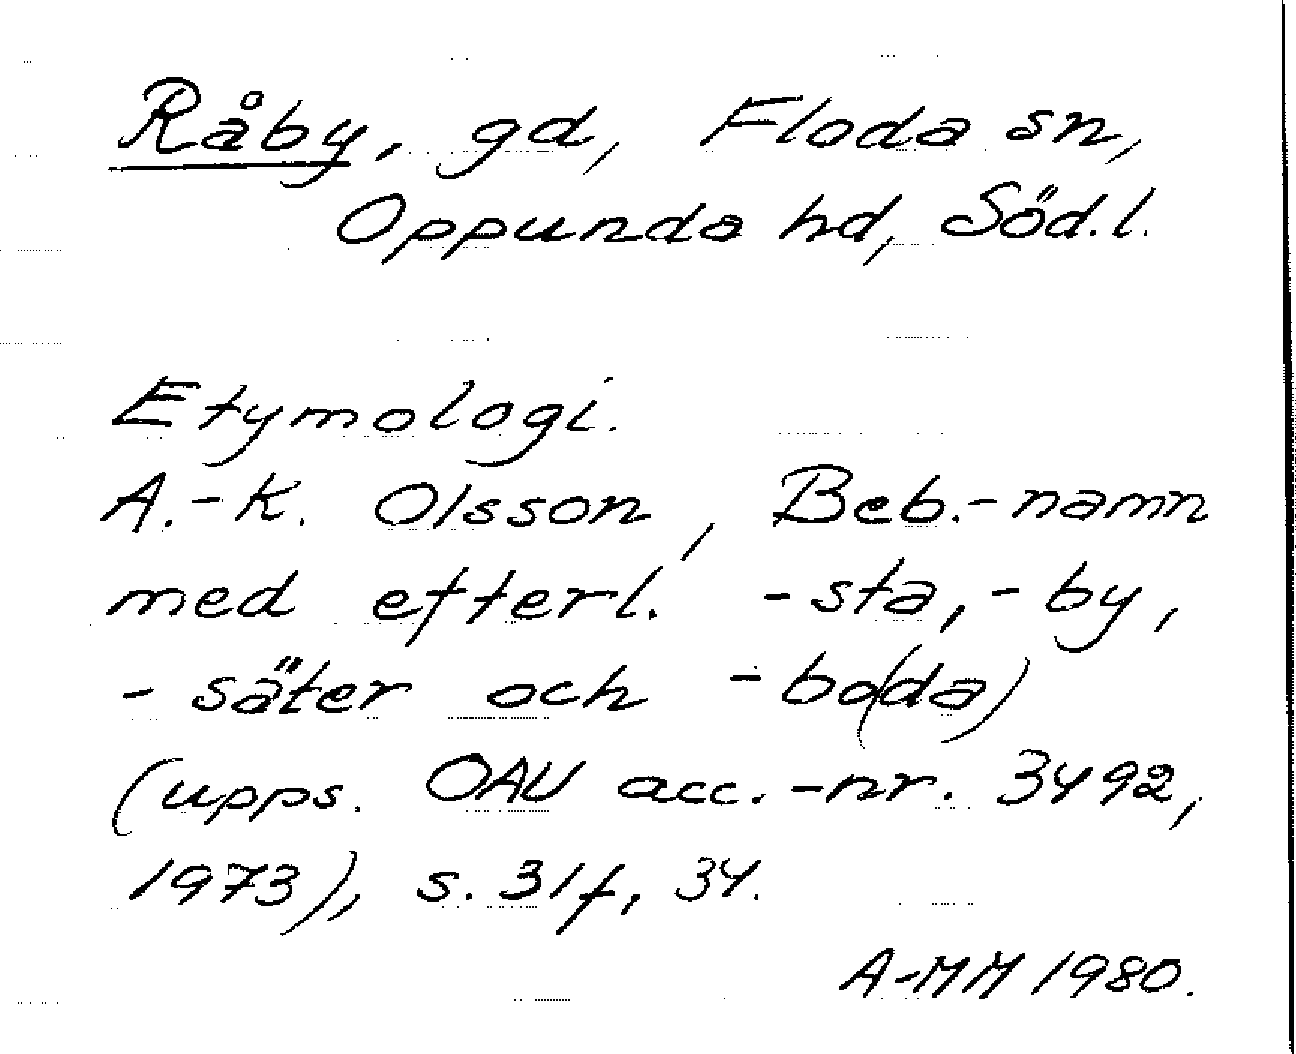 Råby, gd, Floda sn,
Oppunda hd, Söd.l.
Etymologi.
A.-K. Olsson, Beb.-namn
med efterl. -sta, -by,
-säter och -bo(da)
(upps. OAU acc.-nr. 3492,
1973), s. 31f, 34.
A-MM 1980.